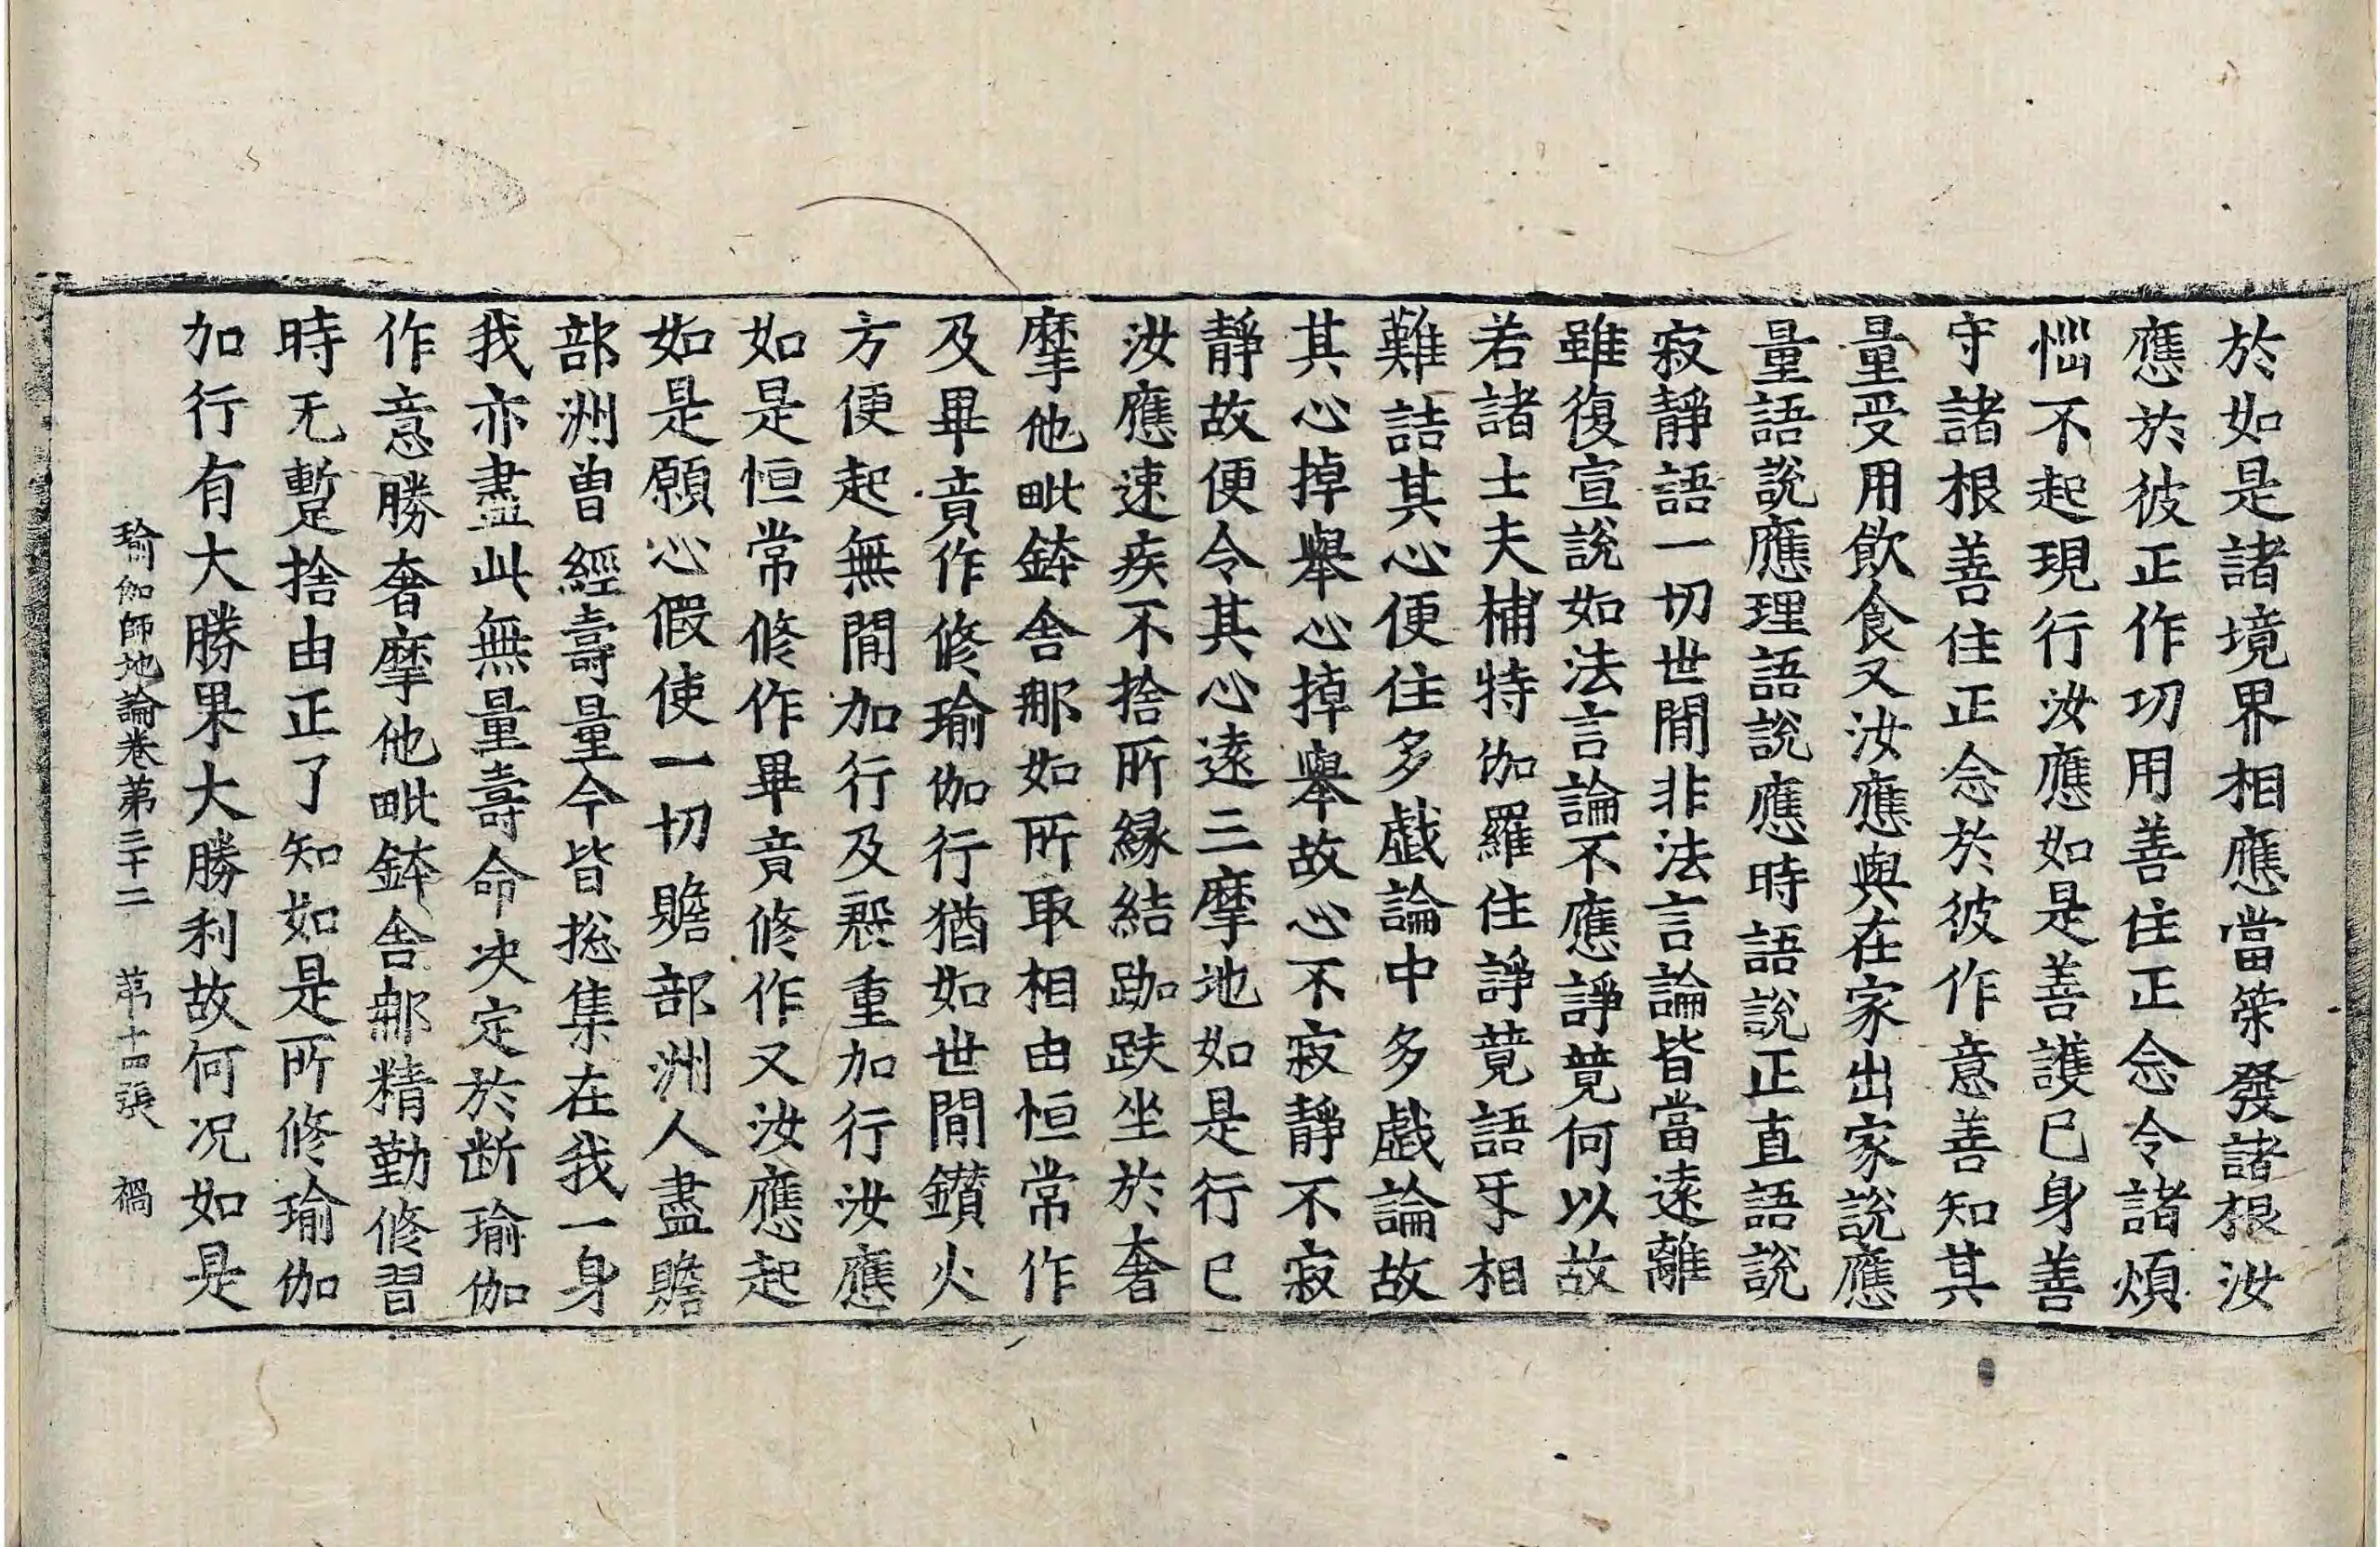 於如是諸境界相應當策發諸根汝
應於彼正作功用善住正念令諸煩
惱不起現行汝應如是善護己身善
守諸根善住正念於彼作意善知其
量受用飲食又汝應與在家出家說應
量語說應理語說應時語說正直語說
寂靜語一切世間非法言論皆當遠離
雖復宣說如法言論不應諍競何以故
若諸士夫補特伽羅住諍競語互相
難詰其心便住多戲論中多戲論故
其心掉舉心掉舉故心不寂靜不寂
靜故便令其心遠三摩地如是行已
汝應速疾不捨所緣結跏趺坐於奢
摩他毗鉢舍那如所取相由恒常作
及畢竟作修瑜伽行猶如世間鑽火
方便起無間加行及慇重加行汝應
如是恒常修作畢竟修作又汝應起
如是願心假使一切贍部洲人盡贍
部洲曾經壽量今皆捴集在我一身
我亦盡此無量壽命决定於断瑜伽
作意勝奢摩他毗鉢舍那精勤修習
時无暫捨由正了知如是所修瑜伽
加行有大勝果大勝利故何况如是
瑜伽師地論卷第三十二 第十四張 禍